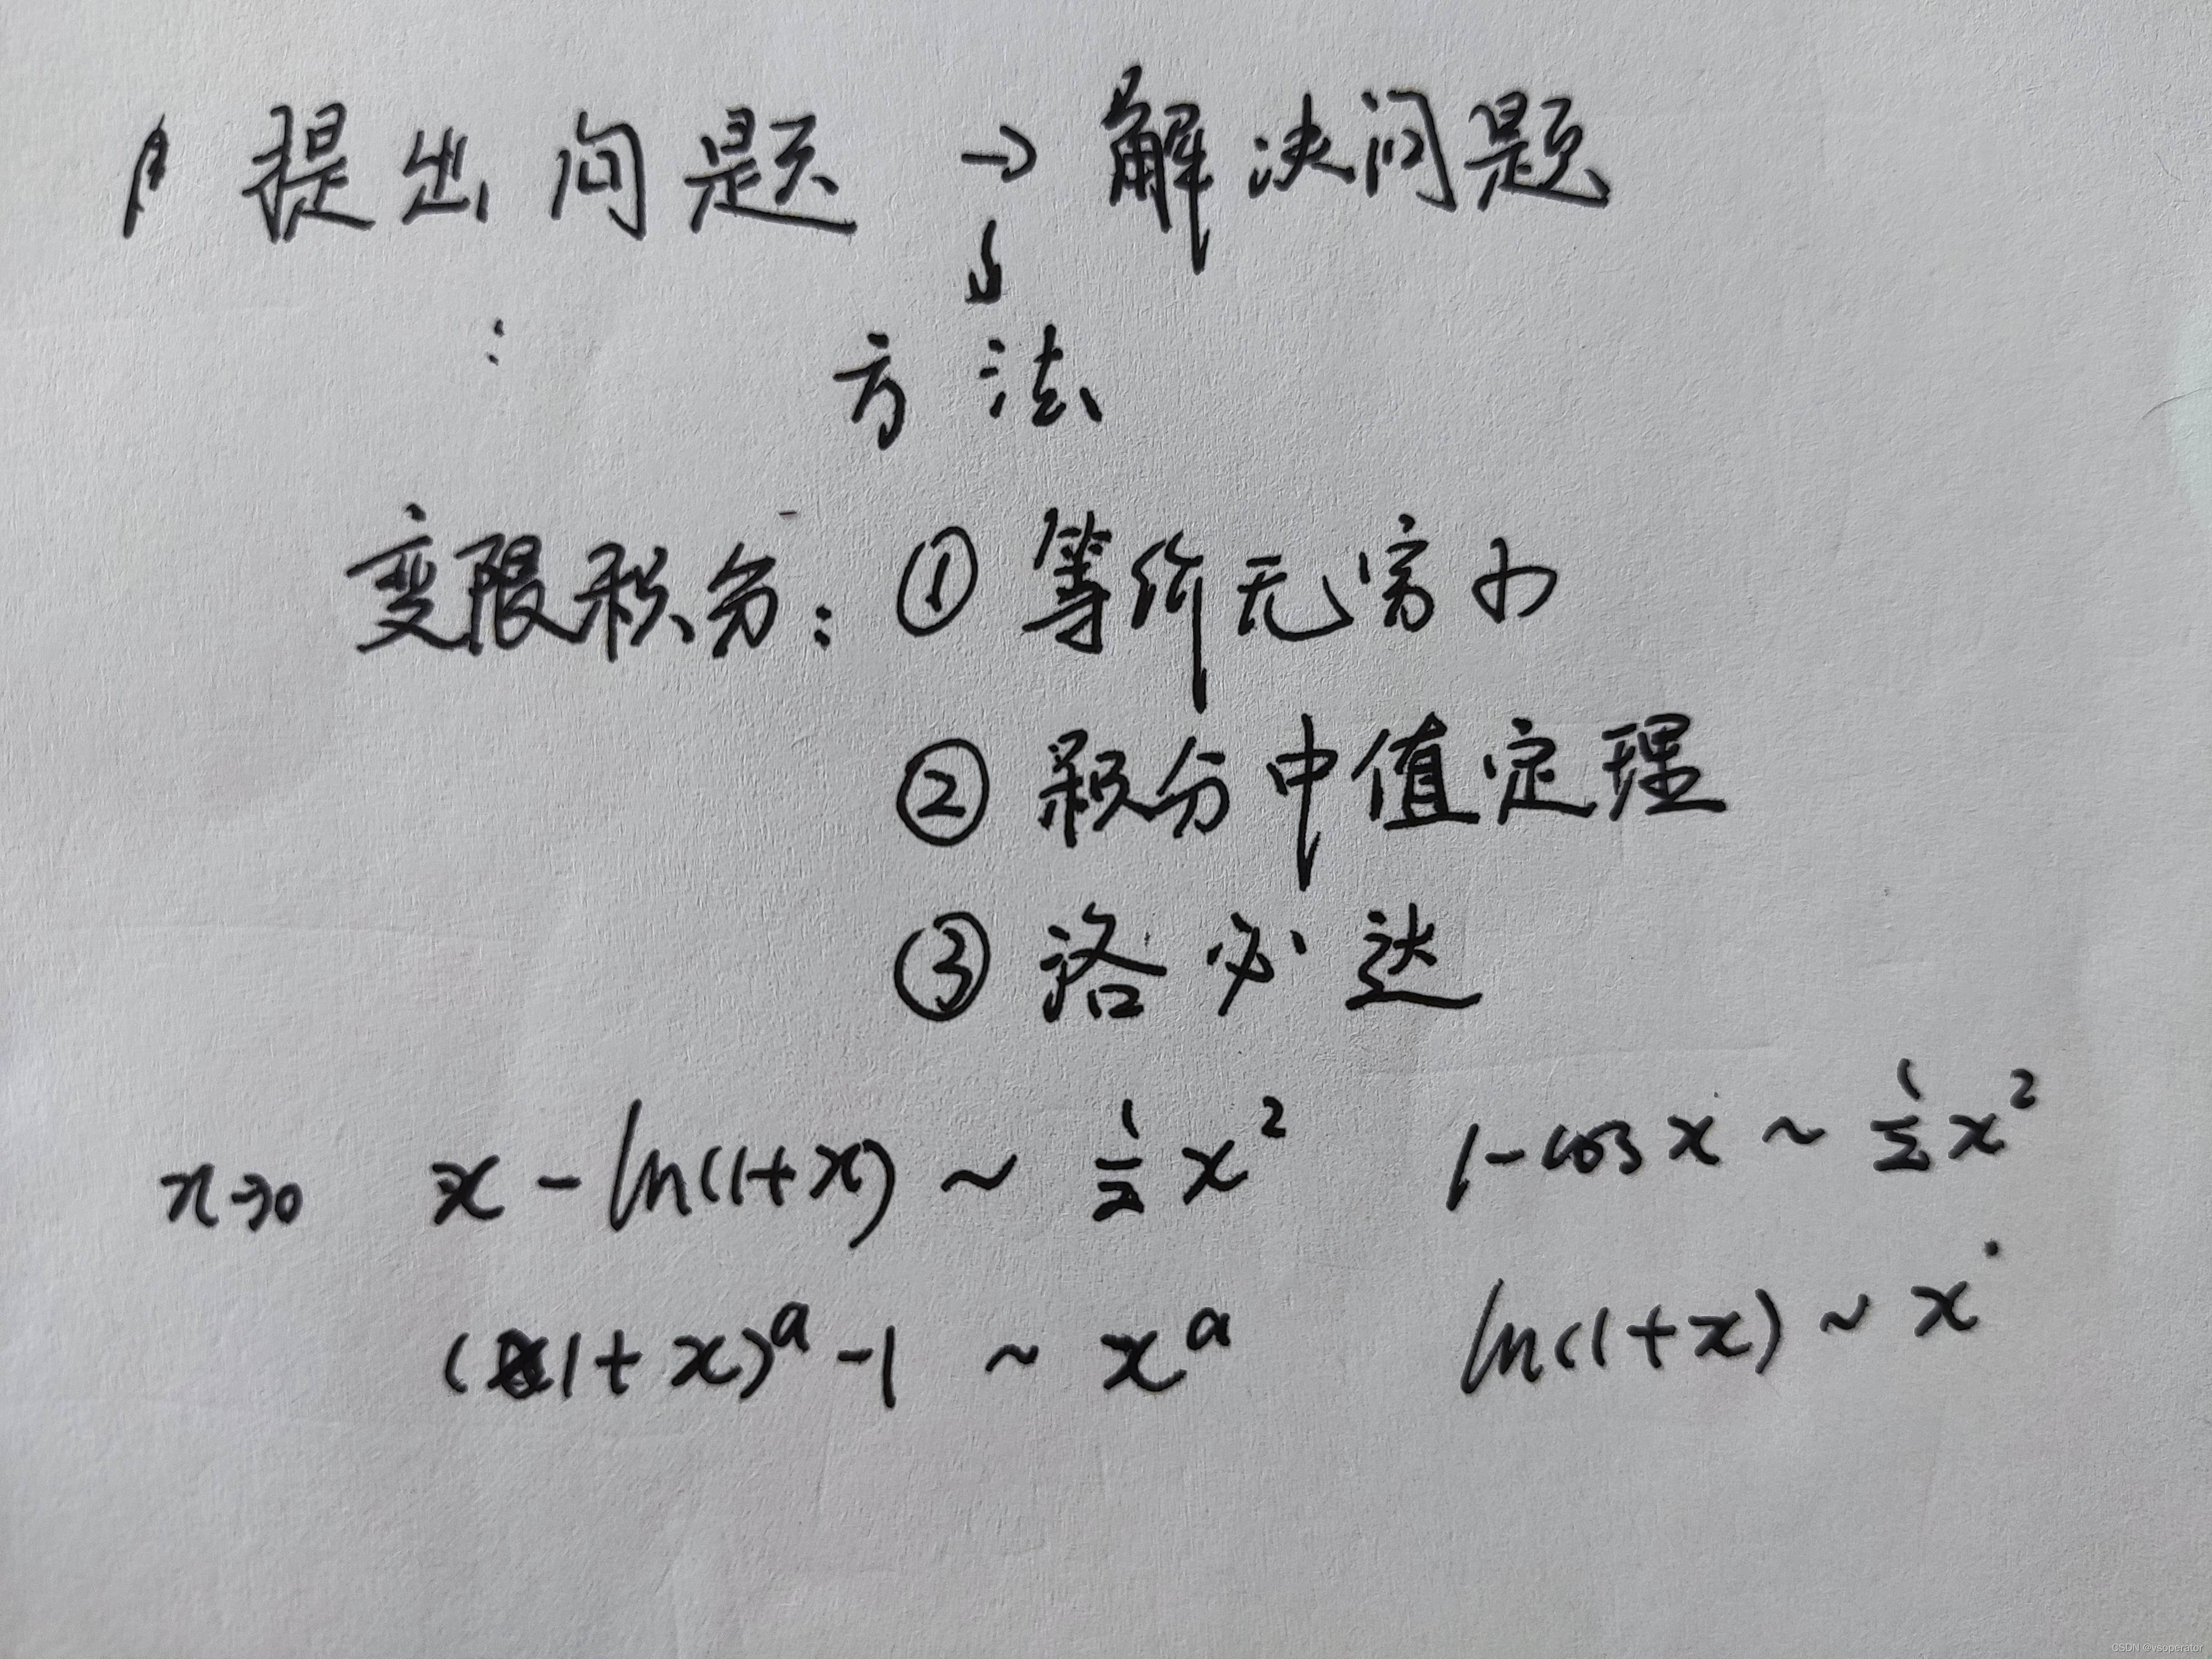 提出问题 → 解决问题
↓
:
方法
变限积分: ① 等价无穷小
② 积分中值定理
③ 洛必达
x→0 x - ln(1+x) ~ 1/2 x² 1-cos x ~ 1/2 x²
(1+x)^a -1 ~ x^a ln(1+x) ~ x
CSDN @vsoperator